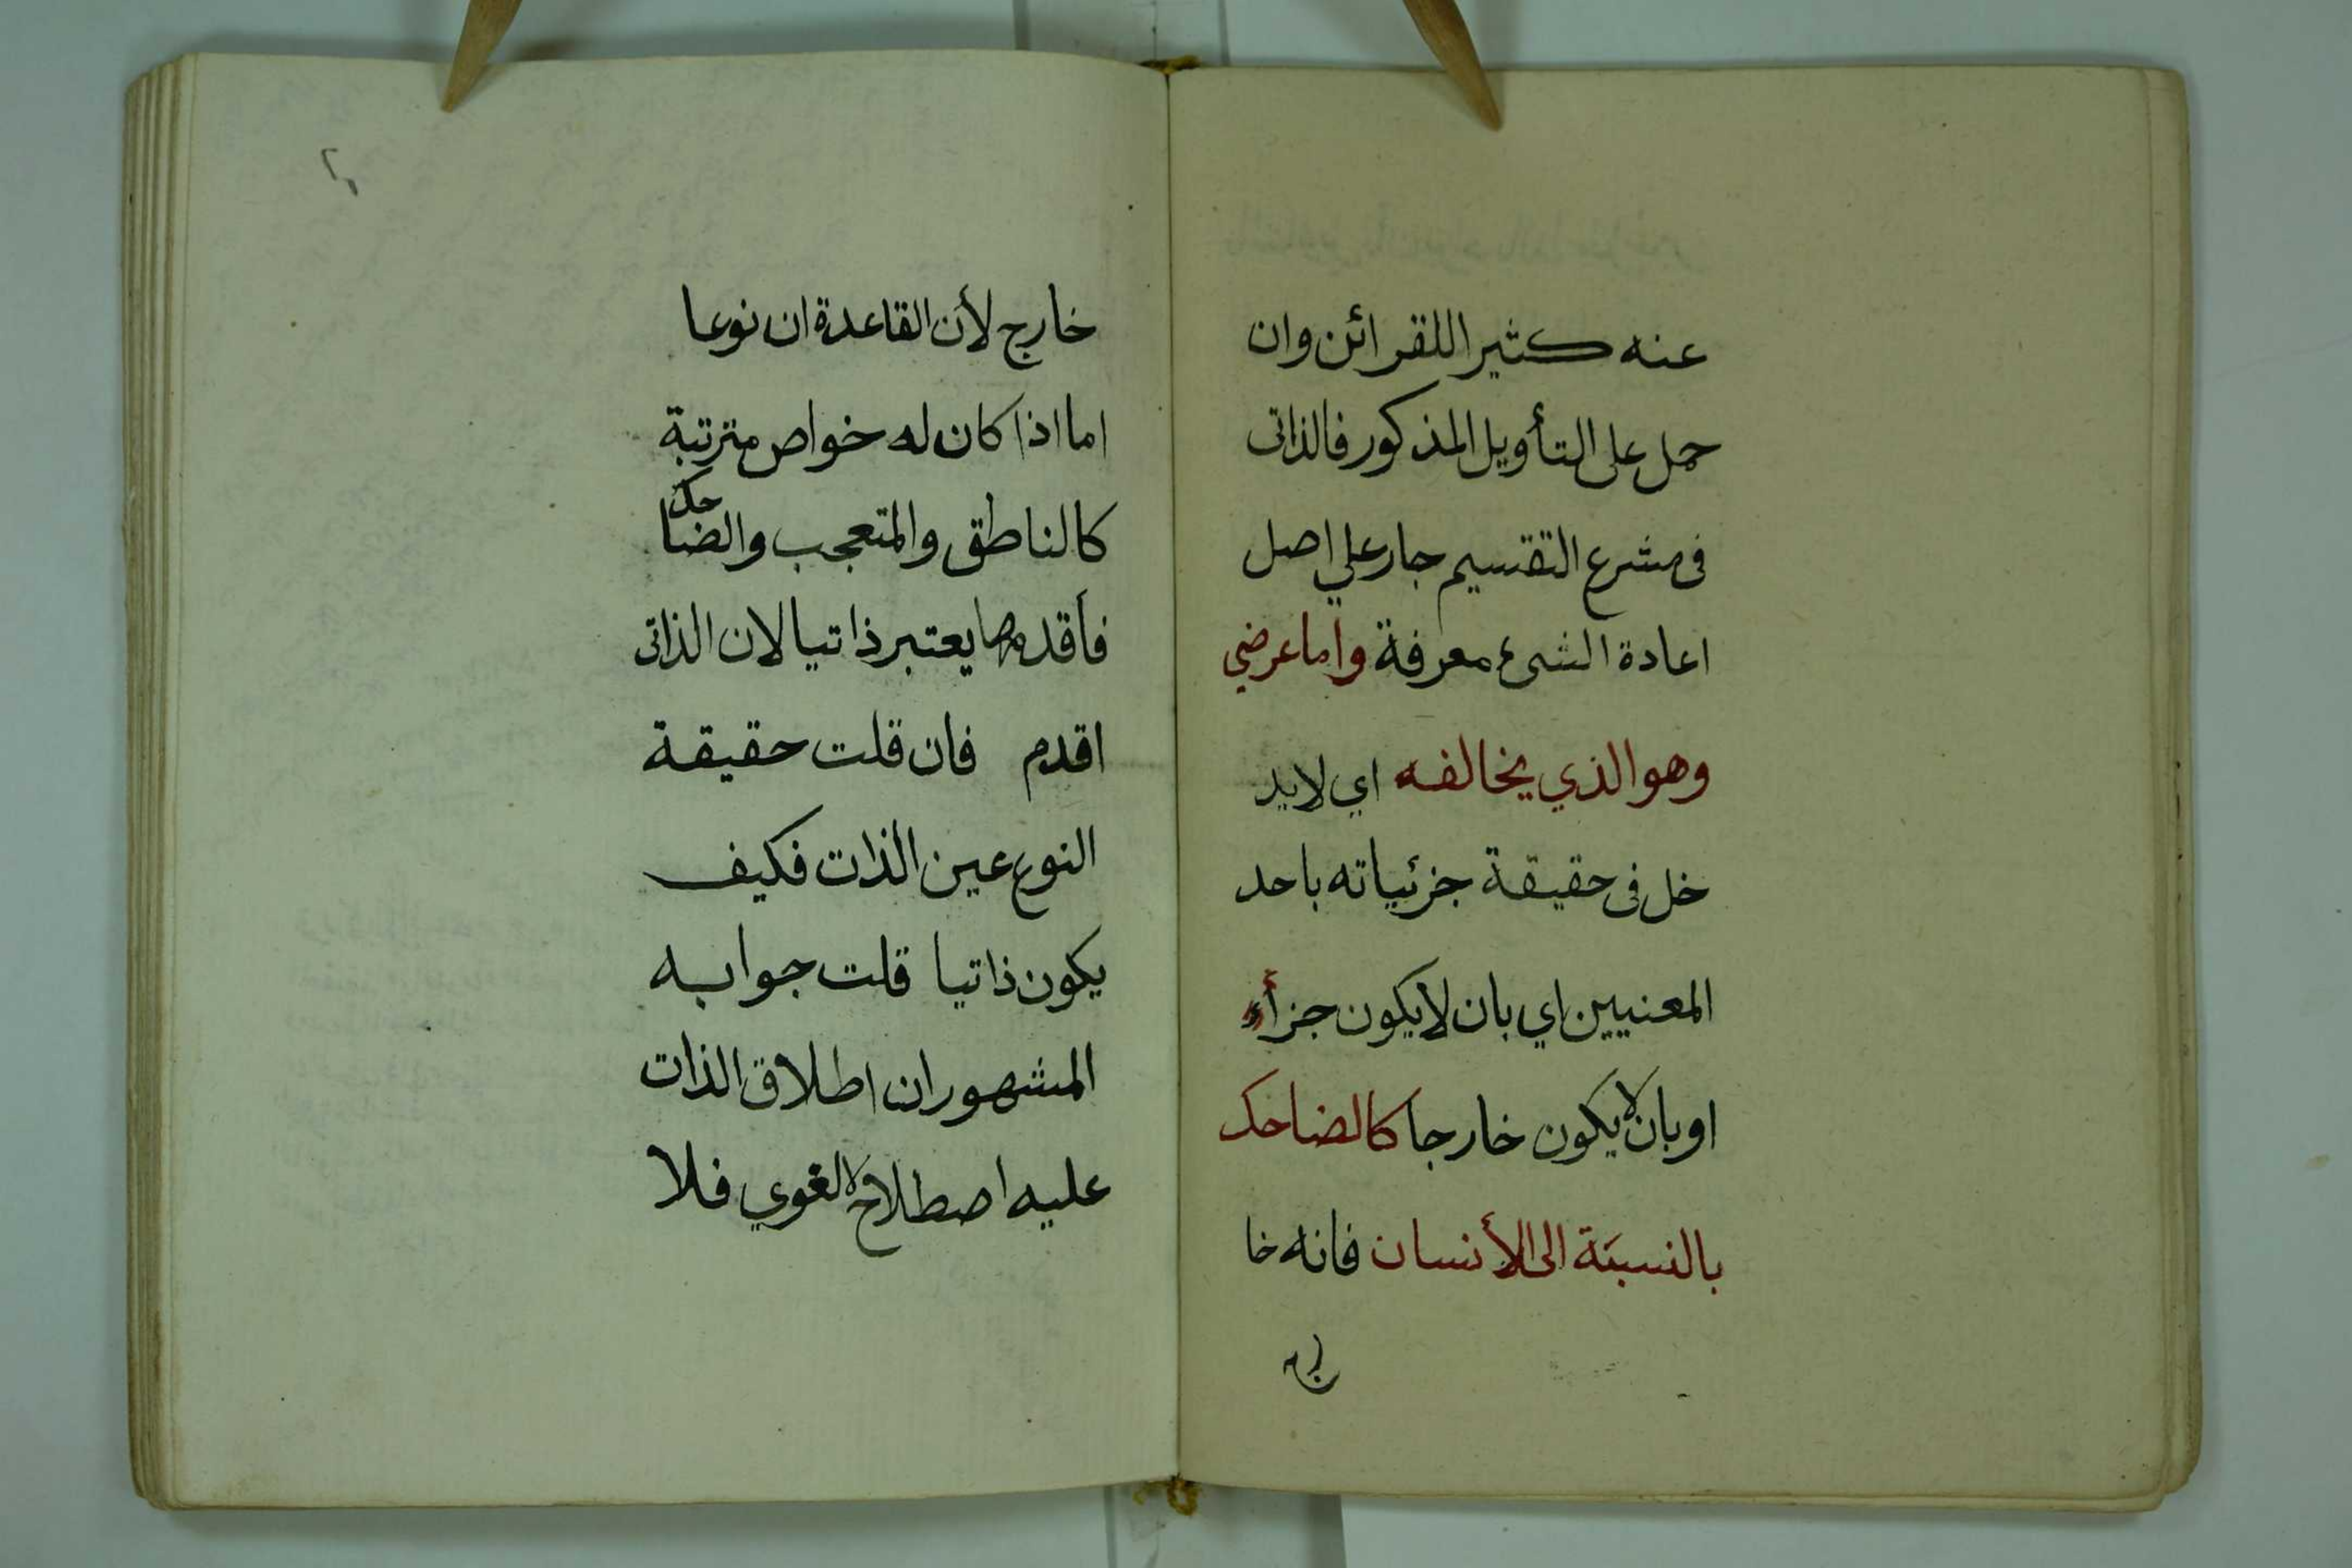 عنه كثيرا للقرائن وان
حمل على التأويل المذكور فالذاتى
فى مشرع التقسيم جار علي اصل
اعادة الشىء معرفة واما عرضي
وهو الذي يخالفه اي لايد
خل فى حقيقة جزئياته باحد
المعنيين اي بان لا يكون جزأ
او بان لا يكون خارجا كالضاحك
بالنسبة الى الأنسان فانه خا
رج
خارج لأن القاعدة ان نوعا
اما اذا كان له خواص مترتبة
كالناطق والمتعجب والضاحك
فأقدمها يعتبر ذاتيا لان الذاتى
اقدم فان قلت حقيقة
النوع عين الذات فكيف
يكون ذاتيا قلت جوابه
المشهور ان اطلاق الذات
عليه اصطلاح لا لغوي فلا